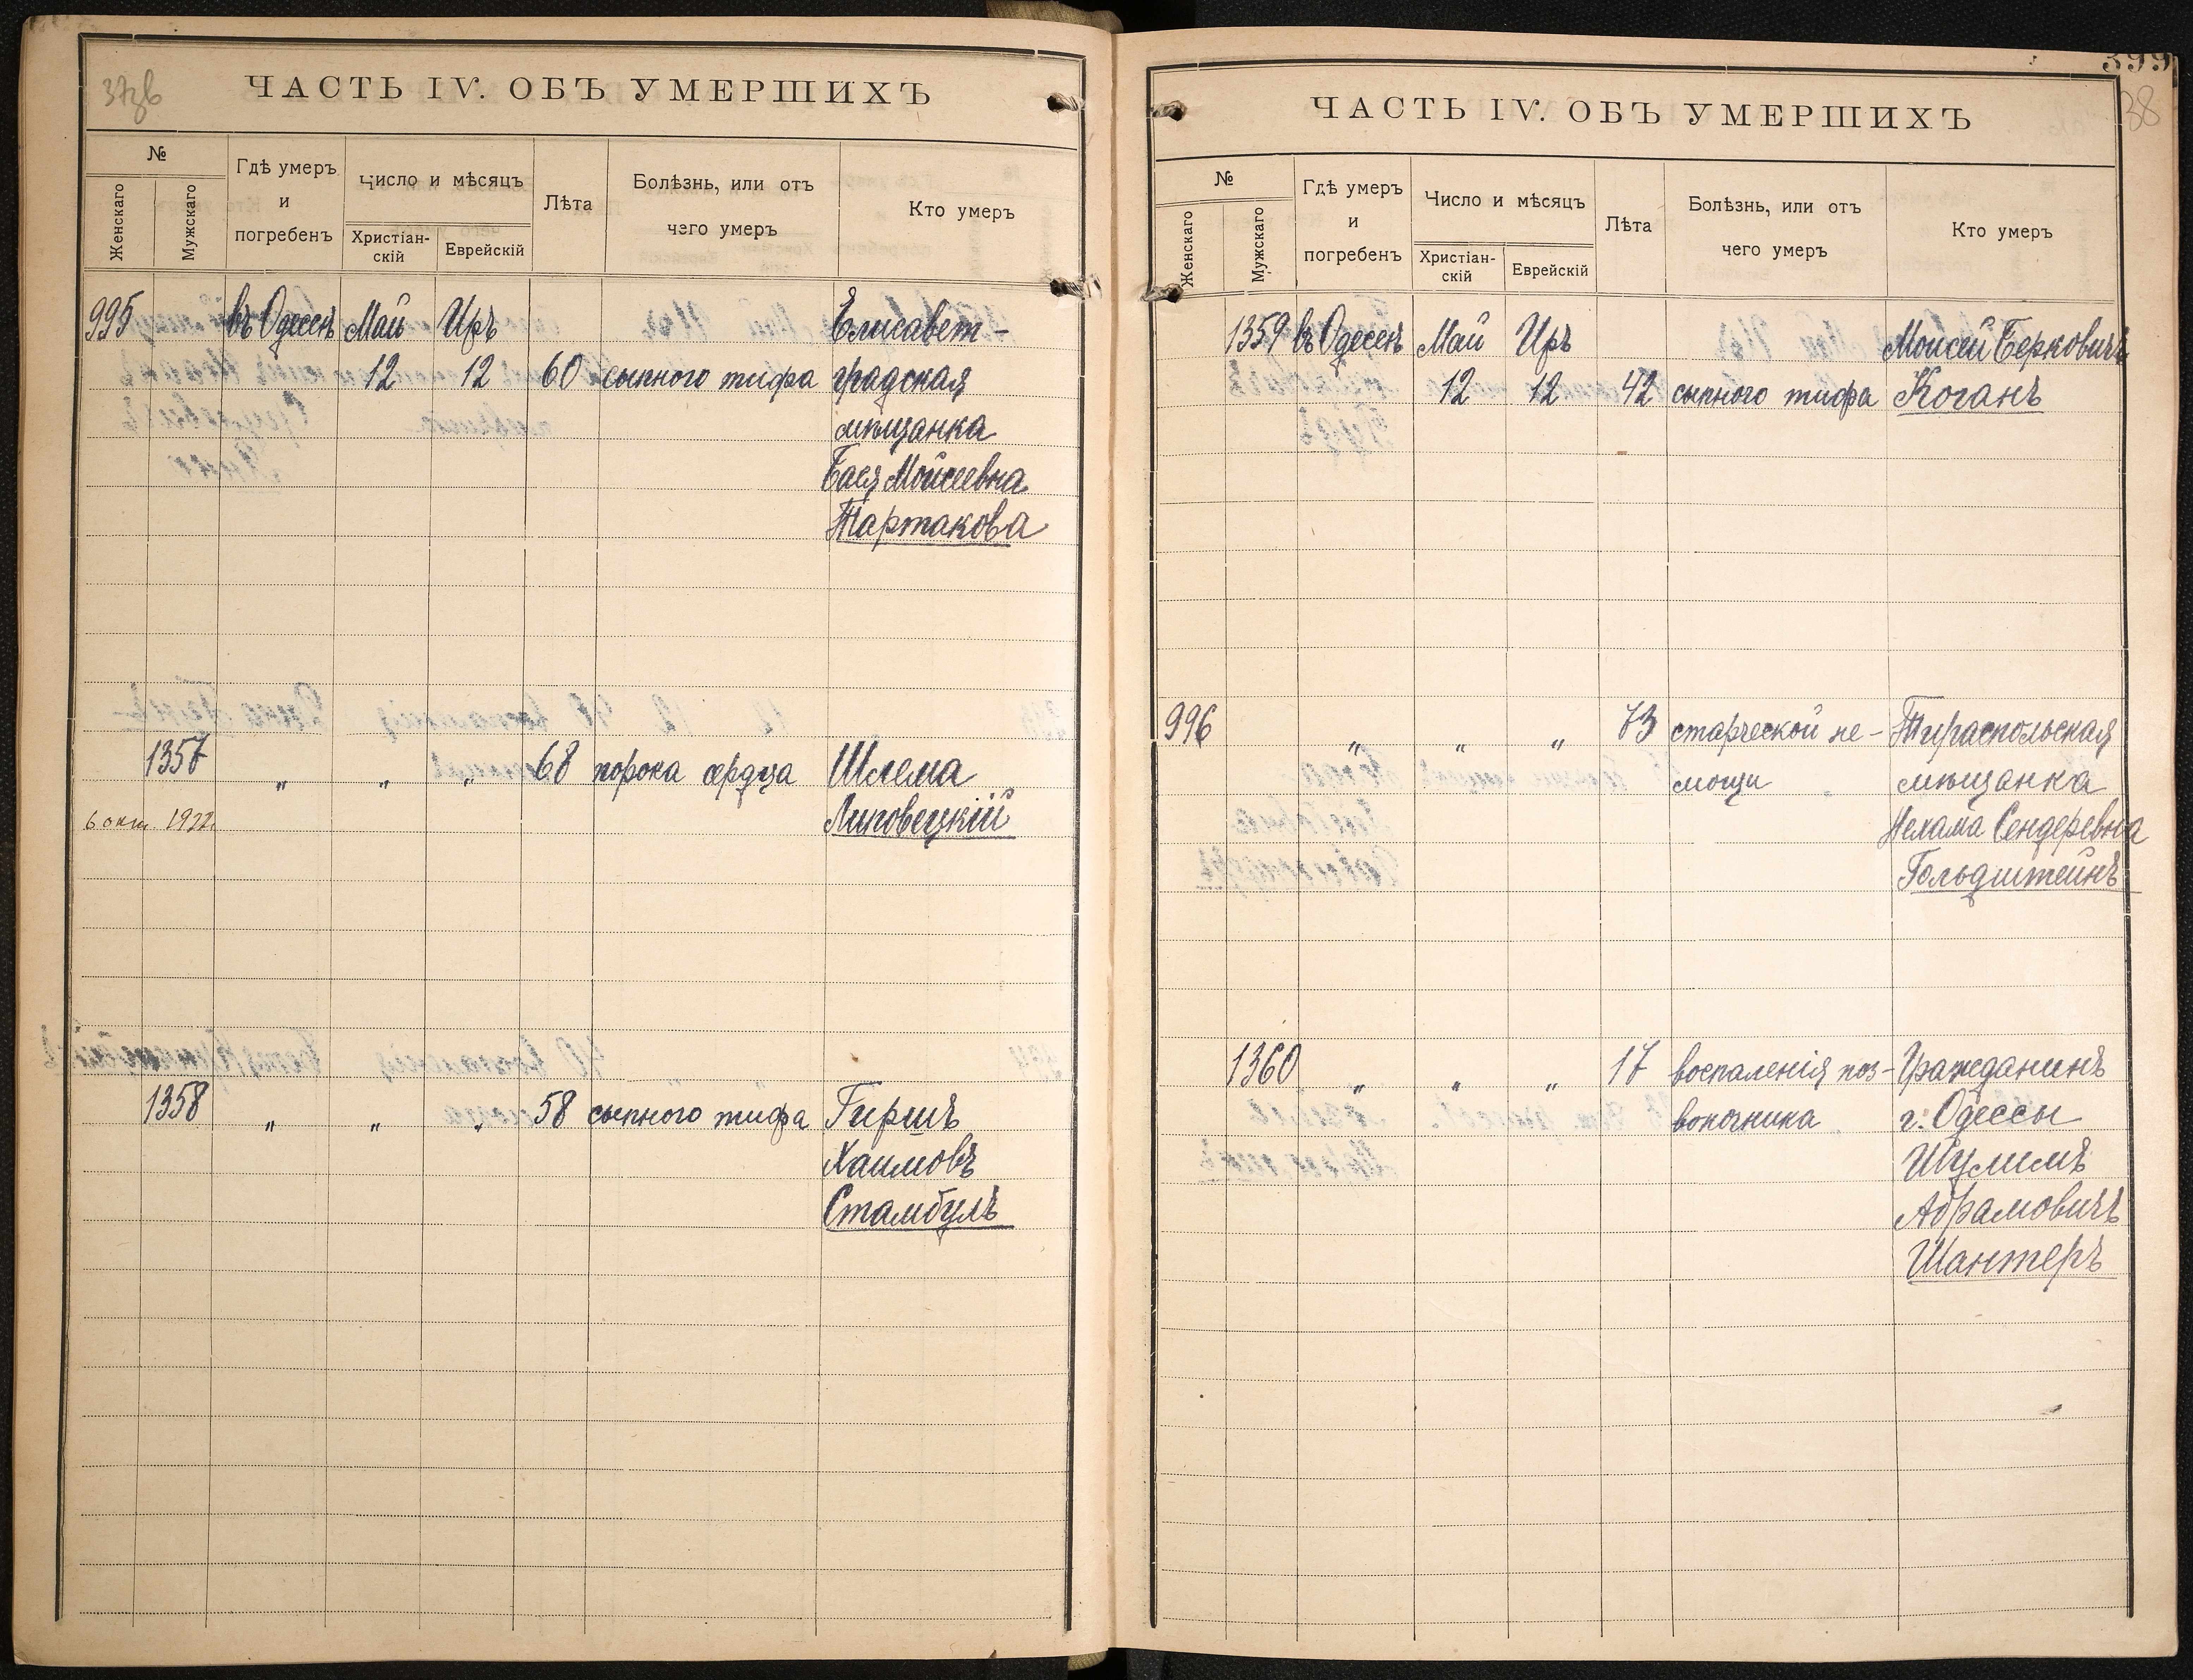 37зв
ЧАСТЬ IV. ОБЪ УМЕРШИХЪ
№
Женскаго
Мужскаго
Гдѣ умеръ и погребенъ
Число и мѣсяцъ
Христіан-скій
Еврейскій
Лѣта
Болѣзнь, или отъ чего умеръ
Кто умеръ
995 въ Одессѣ Май Иръ Елисавет-
12 12 60 сыпного тифа градская
мѣщанка
Бася Мойсеевна
Тартакова
1357 " " " 68 порока сердца Шлема
6 окт 1922. Липовецкій
1358 " " " 58 сыпного тифа Гиршъ
Хаимовъ
Стамбулъ
399
38
ЧАСТЬ IV. ОБЪ УМЕРШИХЪ
№
Женскаго
Мужскаго
Гдѣ умеръ и погребенъ
Число и мѣсяцъ
Христіан-скій
Еврейскій
Лѣта
Болѣзнь, или отъ чего умеръ
Кто умеръ
1359 въ Одессѣ Май Иръ Моисей Берковичъ
12 12 42 сыпного тифа Коганъ
996 " " " 73 старческой не- Тираспольская
мощи мѣщанка
Нехама Сендеревна
Гольдштейнъ
1360 " " " 17 воспаленія поз- Гражданинъ
воночника г. Одессы
Шулимъ
Абрамовичъ
Шантеръ